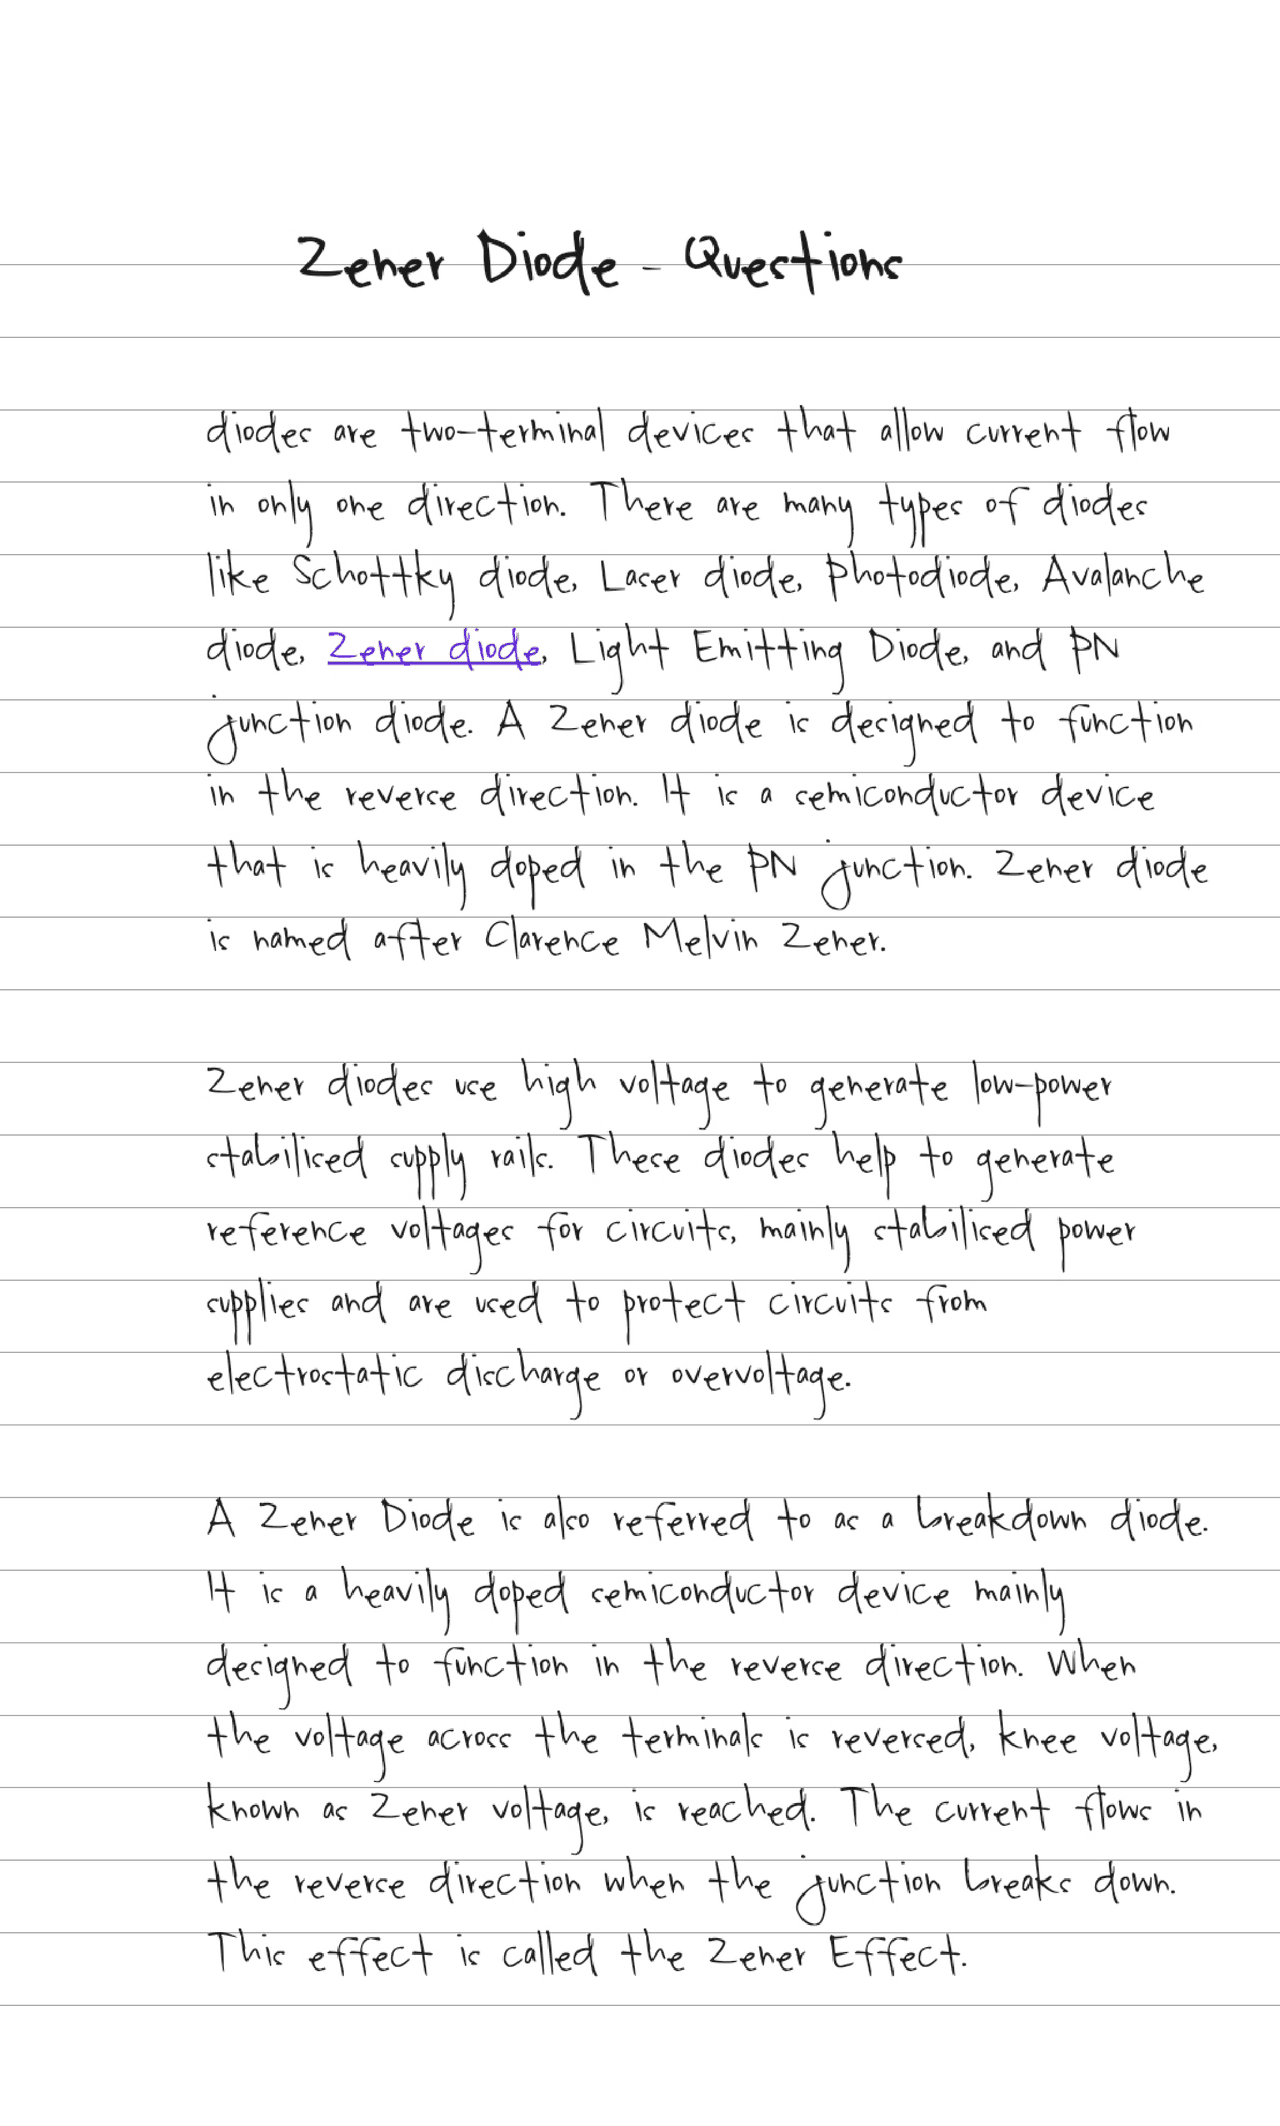 Zener Diode - Questions
diodes are two-terminal devices that allow current flow
in only one direction. There are many types of diodes
like Schottky diode, Laser diode, Photodiode, Avalanche
diode, Zener diode, Light Emitting Diode, and PN
junction diode. A Zener diode is designed to function
in the reverse direction. It is a semiconductor device
that is heavily doped in the PN junction. Zener diode
is named after Clarence Melvin Zener.
Zener diodes use high voltage to generate low-power
stabilised supply rails. These diodes help to generate
reference voltages for circuits, mainly stabilised power
supplies and are used to protect circuits from
electrostatic discharge or overvoltage.
A Zener Diode is also referred to as a breakdown diode.
It is a heavily doped semiconductor device mainly
designed to function in the reverse direction. When
the voltage across the terminals is reversed, knee voltage,
known as Zener voltage, is reached. The current flows in
the reverse direction when the junction breaks down.
This effect is called the Zener Effect.